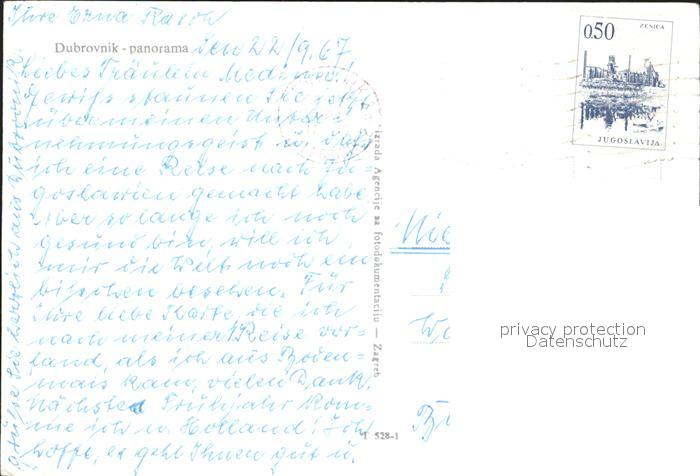 Ihre Erna Rasch
Dubrovnik - panorama den 22/9.67
Liebes Fräulein
Gewiss staunen Sie jetzt
über meinen Unter-
nehmungsgeist u. dass
ich eine Reise nach Ju-
goslawien gemacht habe
Aber so lange ich noch
gesund bin, will ich
mir die Welt noch ein
bisschen besehen. Für
Ihre liebe Karte, die ich
nach meiner Reise vor-
fand, als ich aus Boden-
mais kam, vielen Dank.
Nächstes Frühjahr kom-
me ich n. Holland! Ich
hoffe, es geht Ihnen gut u.
grüsse Sie herzlich aus Dubrovnik.
Izrada Agencije za fotodokumentaciju — Zagreb
T 528-1
0.50
ZENICA
JUGOSLAVIJA
privacy protection
Datenschutz